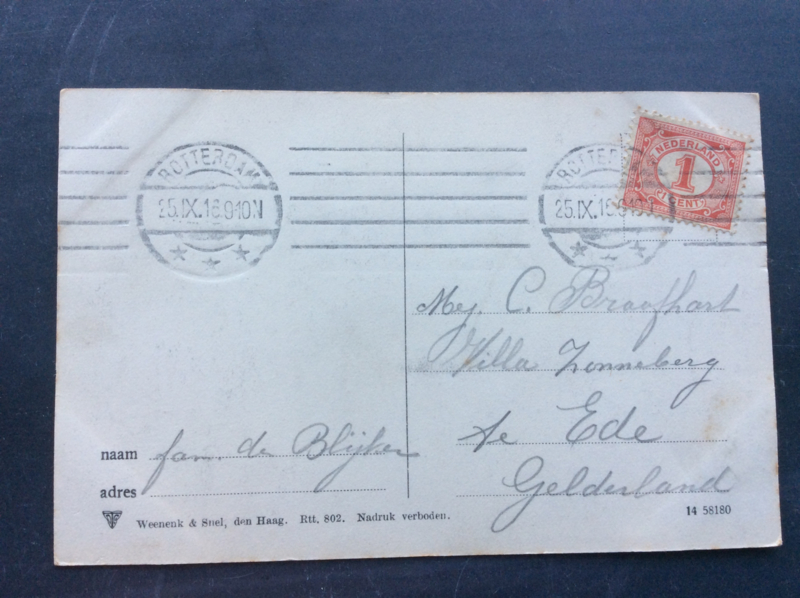 ROTTERDAM
25.IX.16.9-10N
ROTTERD
25.IX.16.9-10
NEDERLAND
1
CENT
Mej. C. Braafhart
Villa Zonneberg
te Ede
Gelderland
naam fam. de Blijker
adres
Weenenk & Snel, den Haag. Rtt. 802. Nadruk verboden.
14 58180